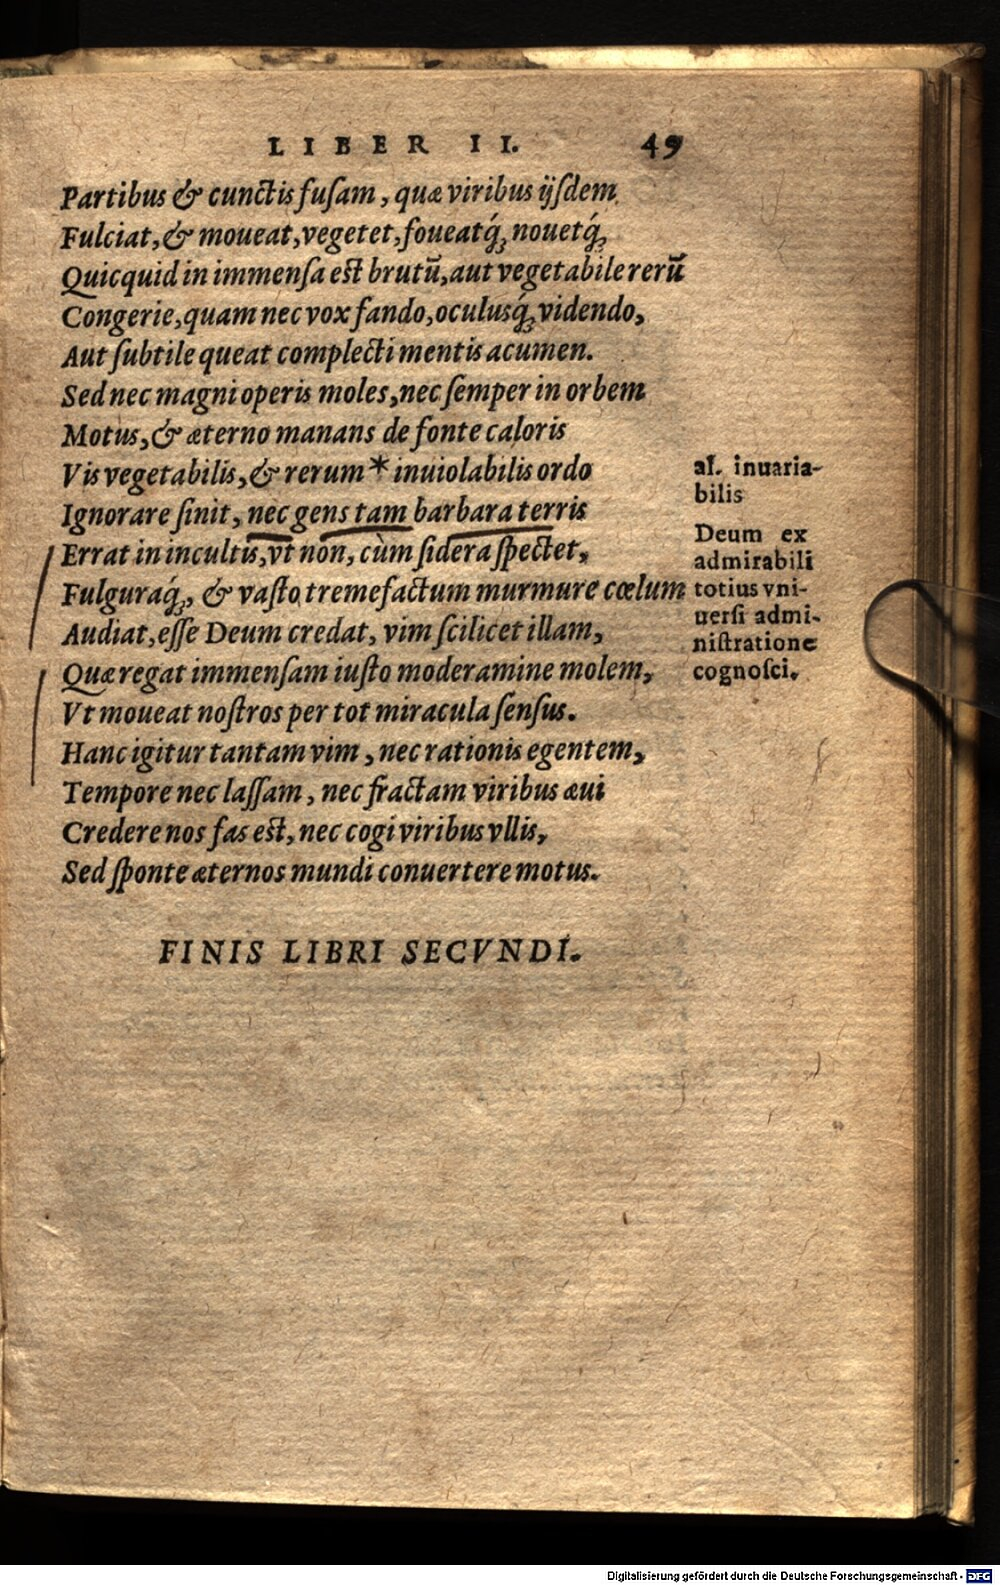 LIBER II. 49
Partibus & cunctis fuſam, quæ viribus ijſdem
Fulciat, & moueat, vegetet, foueatq́;, nouetq́;
Quicquid in immenſa est brutū, aut vegetabile rerū
Congerie, quam nec vox fando, oculusq́; videndo,
Aut ſubtile queat complecti mentis acumen.
Sed nec magni operis moles, nec ſemper in orbem
Motus, & æterno manans de fonte caloris
Vis vegetabilis, & rerum * inuiolabilis ordo
Ignorare ſinit, nec gens tam barbara terris
Errat in incultis, vt non, cùm ſidera ſpectet,
Fulguraq́;, & vaſto tremefactum murmure cœlum
Audiat, eſſe Deum credat, vim ſcilicet illam,
Quæ regat immenſam iuſto moderamine molem,
Vt moueat noſtros per tot miracula ſenſus.
Hanc igitur tantam vim, nec rationis egentem,
Tempore nec laſſam, nec fractam viribus æui
Credere nos fas est, nec cogi viribus vllis,
Sed ſponte æternos mundi conuertere motus.
FINIS LIBRI SECVNDI.
al. inuaria-
bilis
Deum ex
admirabili
totius vni-
uerſi admi-
niſtratione
cognoſci.
Digitalisierung gefördert durch die Deutsche Forschungsgemeinschaft - DFG